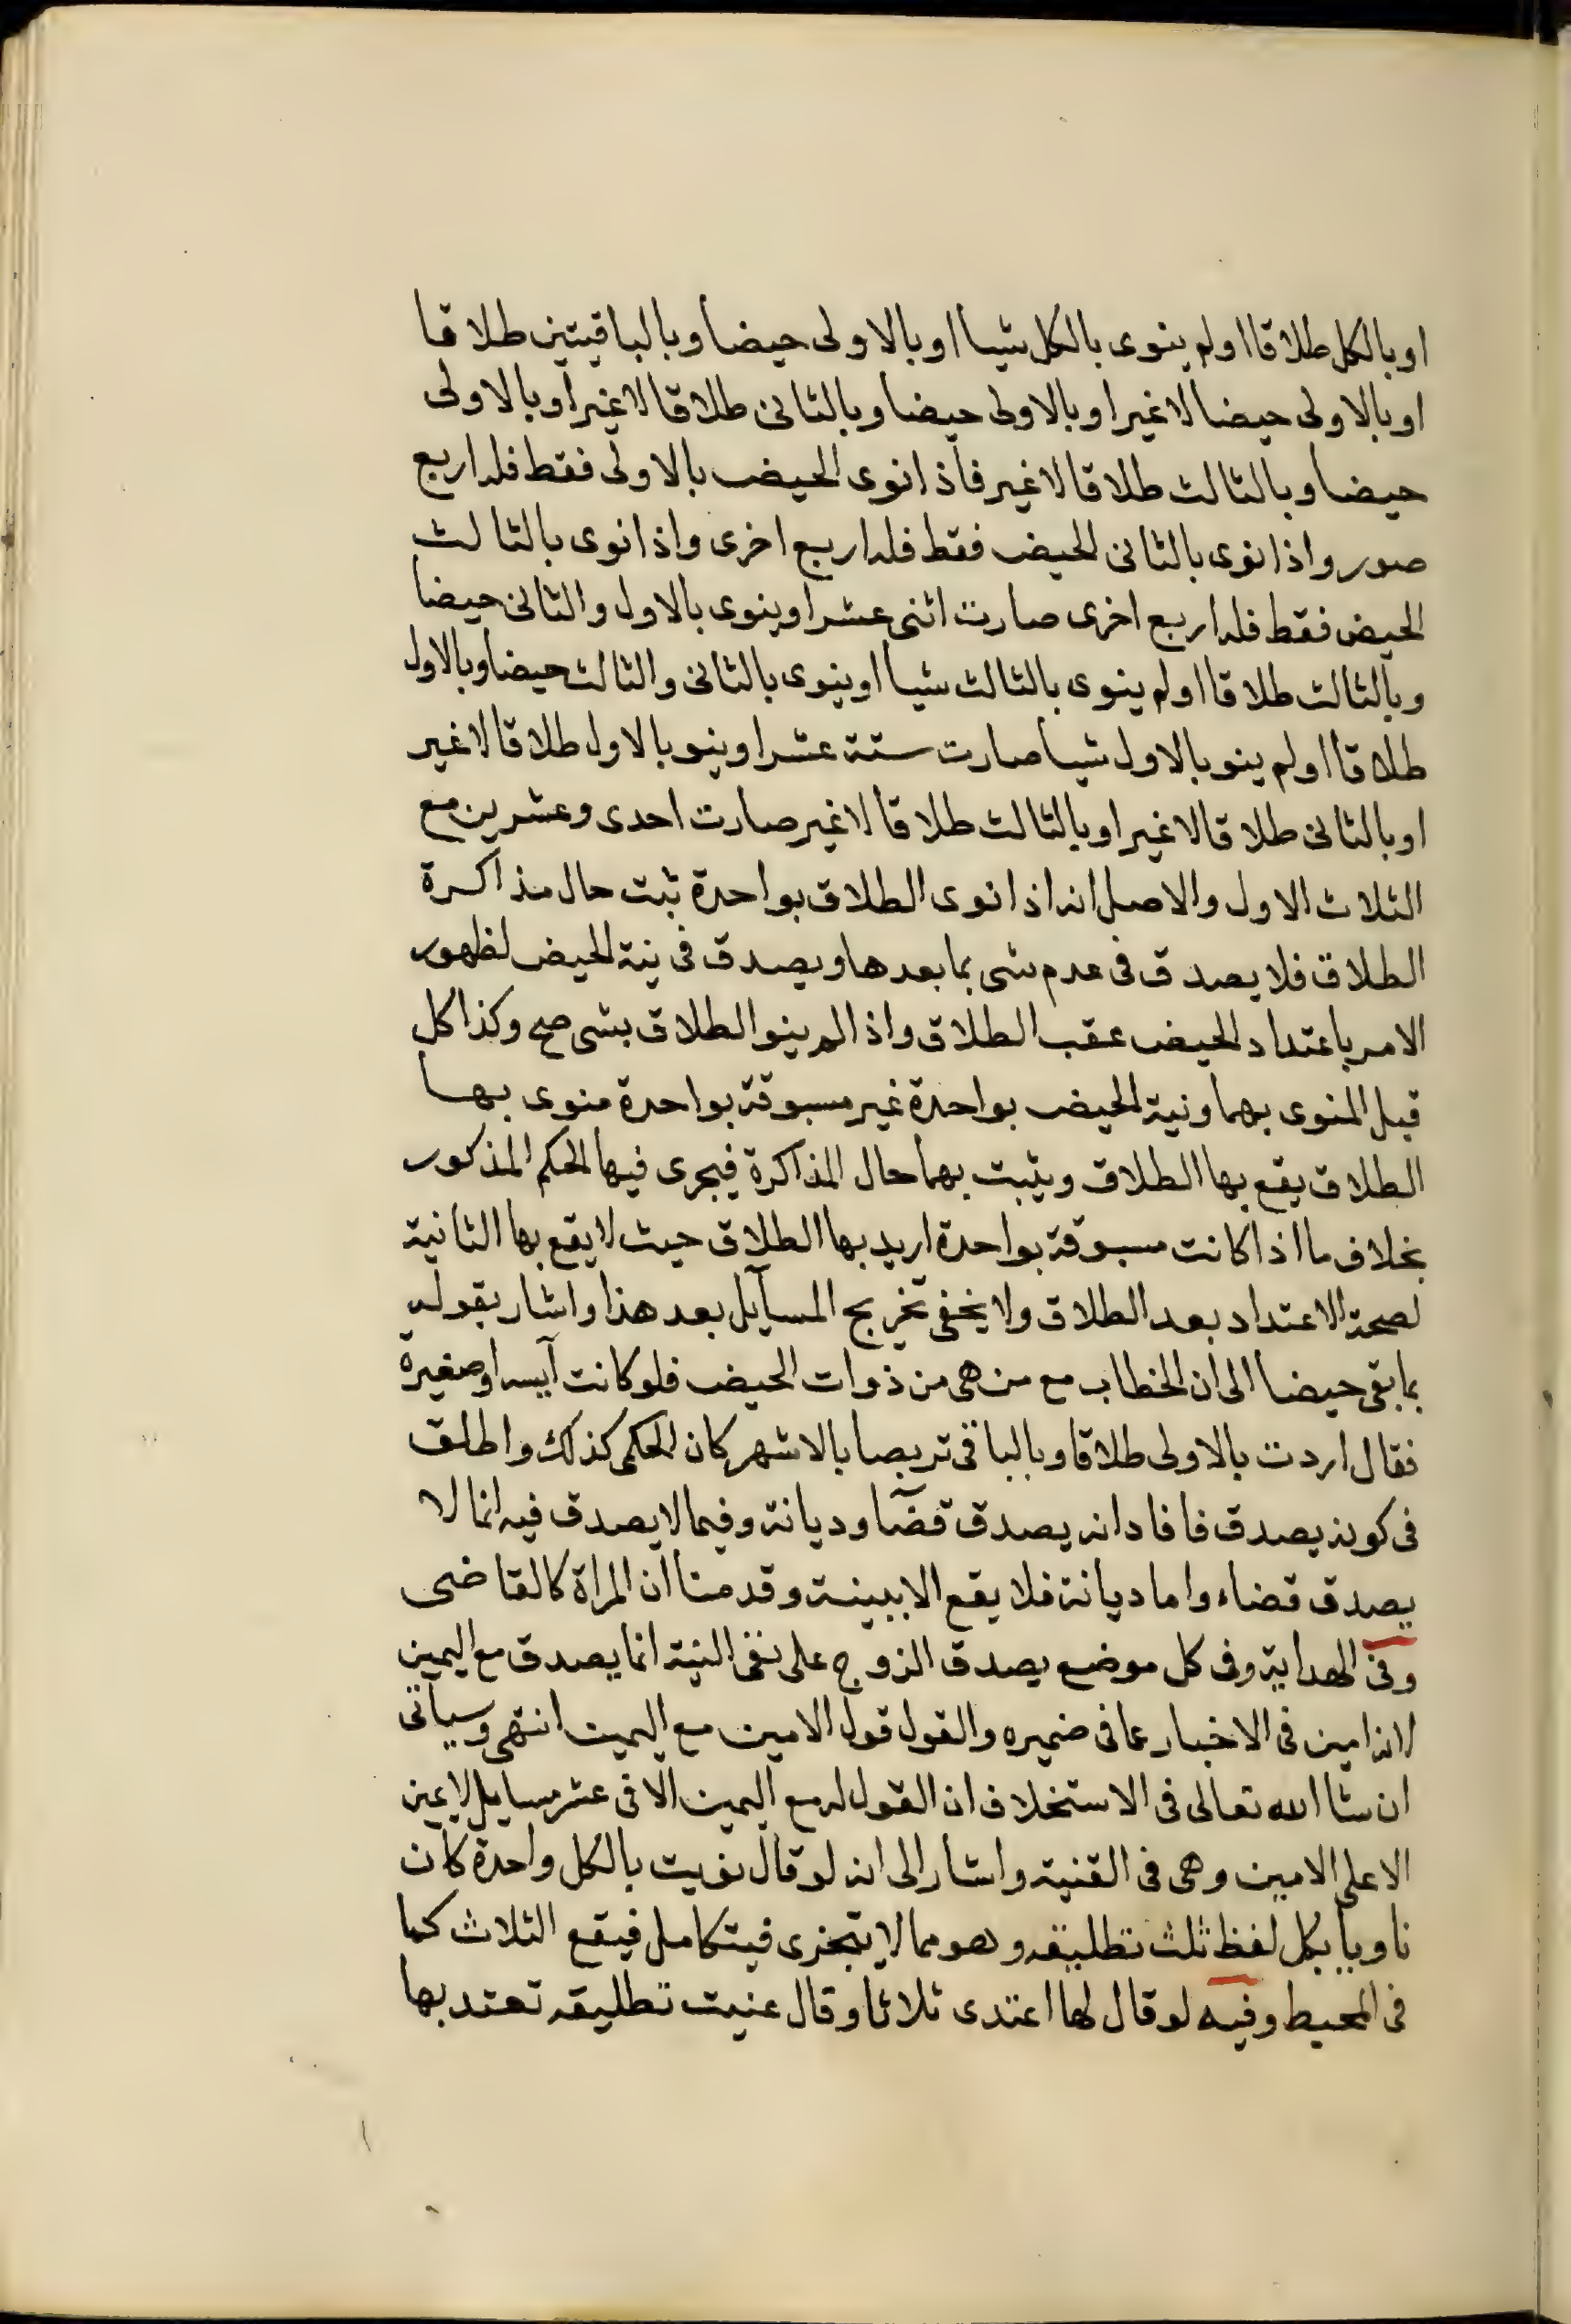 او بالكل طلاقا او لم ينوى بالكل شيا او بالاولى حيضا وبالباقيتين طلاقا
او بالاولى حيضا لا غير او بالاولى حيضا وبالثانى طلاقا لا غير او بالاولى
حيضا وبالثالث طلاقا لا غير فاذا نوى الحيض بالاولى فقط فله اربع
صور واذا نوى بالثانى الحيض فقط فله اربع اخرى واذا نوى بالثالث
الحيض فقط فله اربع اخرى صارت اثنى عشر او ينوى بالاول والثانى حيضا
وبالثالث طلاقا او لم ينوى بالثالث شيا او ينوى بالثانى والثالث حيضا وبالاول
طلاقا او لم ينو بالاول شيا صارت ستة عشر او ينو بالاول طلاقا لا غير
او بالثانى طلاقا لا غير او بالثالث طلاقا لا غير صارت احدى وعشرين مع
الثلاث الاول والاصل انه اذا نوى الطلاق بواحدة ثبت حال مذاكرة
الطلاق فلا يصدق فى عدم شى بما بعدها ويصدق فى نية الحيض لظهور
الامر باعتداد الحيض عقب الطلاق واذا لم ينو الطلاق بشى صح وكذا كل
قبل المنوى بهما ونية الحيض بواحدة غير مسبوقة بواحدة منوى بها
الطلاق يقع بها الطلاق ويثبت بهما حال المذاكرة فيجرى فيها الحكم المذكور
بخلاف ما اذا كانت مسبوقة بواحدة اريد بها الطلاق حيث لا يقع بها الثانية
لصحة الاعتداد بعد الطلاق ولا يخفى تخريج المسآيل بعد هذا واشار بقوله
بما بقى حيضا الى ان الخطاب مع من هى من ذوات الحيض فلو كانت آيسه او صغيرة
فقال اردت بالاولى طلاقا وبالباقى تربصا بالاشهر كان الحكم كذلك واطلق
فى كونه يصدق فافاد انه يصدق قضآ وديانة وفيما لا يصدق فيه انما لا
يصدق قضاء واما ديانة فلا يقع الا ببينة وقدمنا ان المراة كالقاضى
وفى الهداية وفى كل موضع يصدق الزوج على نفى النية انما يصدق مع اليمين
لانه امين فى الاخبار عما فى ضميره والقول قول الامين مع اليمين انتهى وسياتى
ان شا الله تعالى فى الاستخلاف ان القول له مع اليمين الا فى عشر مسايل لا يمين
الا على الامين وهى فى القنية واشار الى انه لو قال نويت بالكل واحدة كان
ناويا بكل لفظ ثلث تطليقه وهو مما لا يتجزى فيتكامل فيقع الثلاث كما
فى المحيط وفيه لو قال لها اعتدى ثلاثا وقال عنيت تطليقه تعتد بها